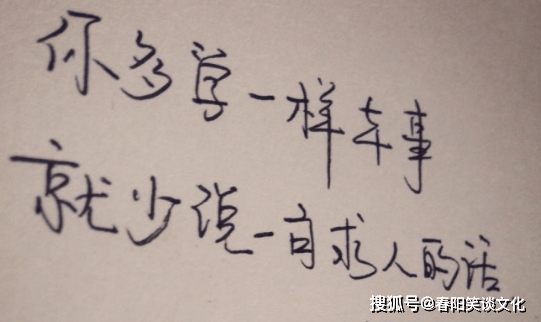 你多学一样本事
就少说一句求人的话
搜狐号@春阳笑谈文化